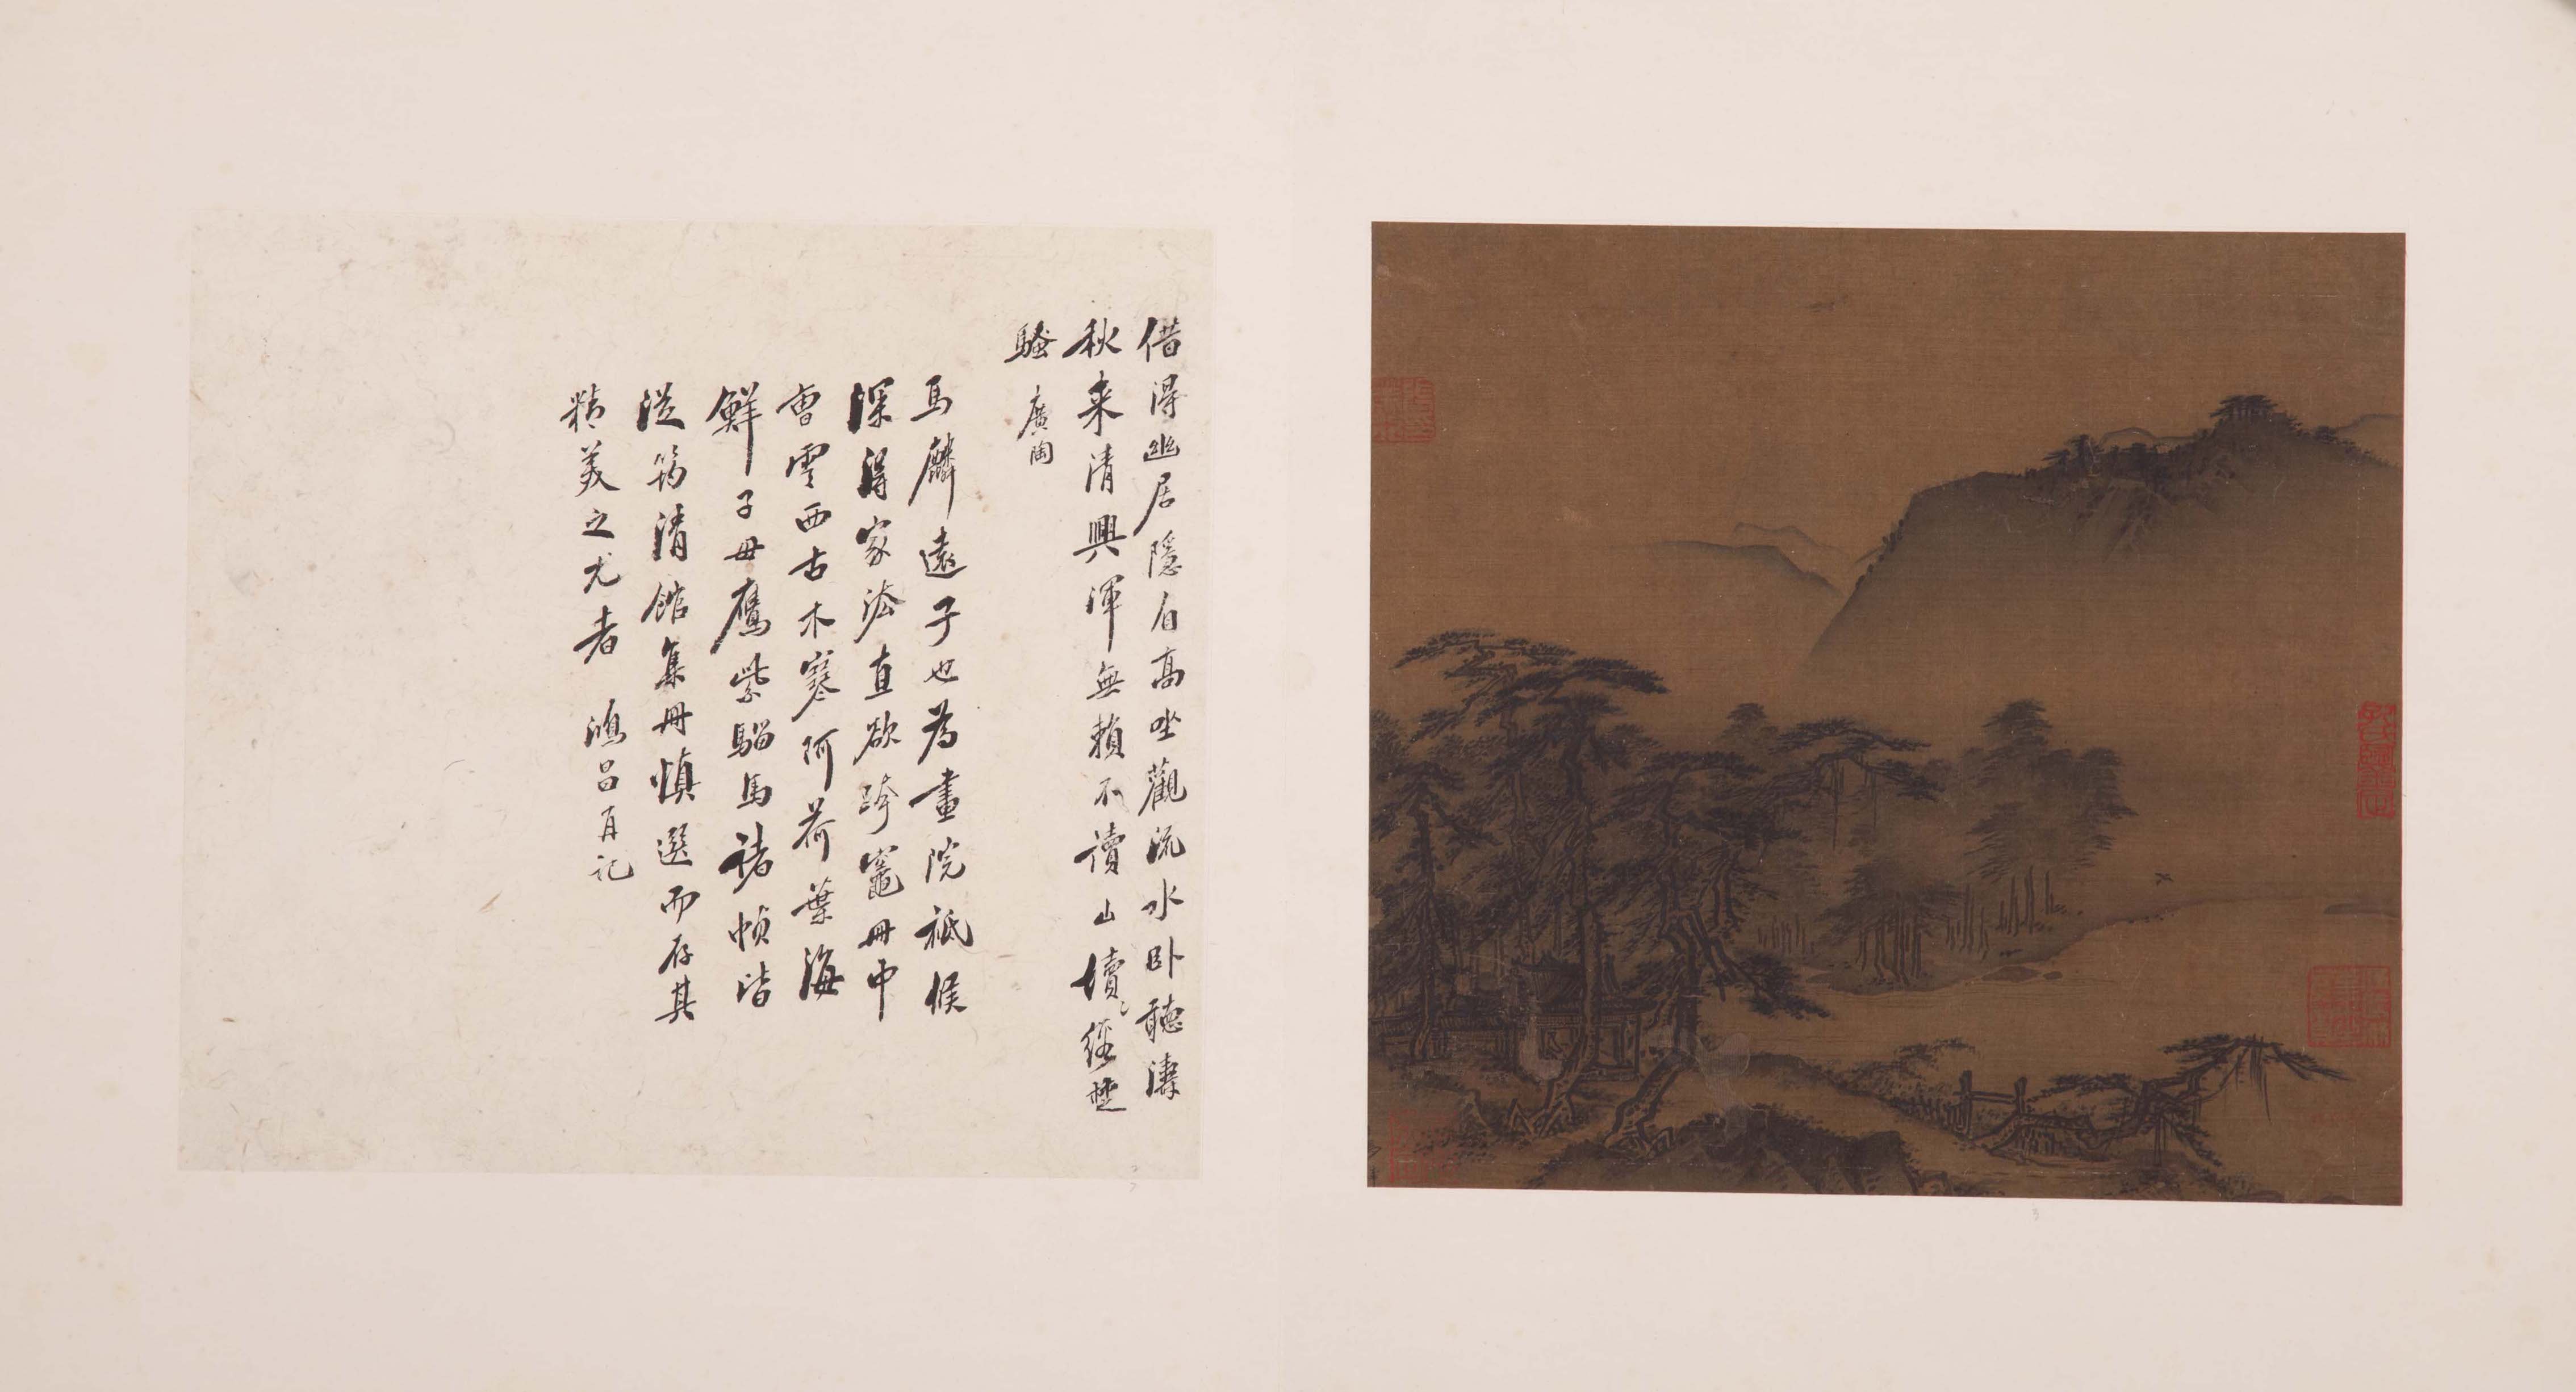 借得幽居隱自高坐觀流水卧聽濤
秋来清興渾無賴不讀山經楚
騷 廣陶
馬麟遠子也為畫院祗候
深得家法直欲跨竈冊中
曹雲西古木寒阿荷葉海
鮮子母鷹紫騮馬諸幀皆
從筠清館集冊慎選而存其
精美之尤者 鴻呂月記